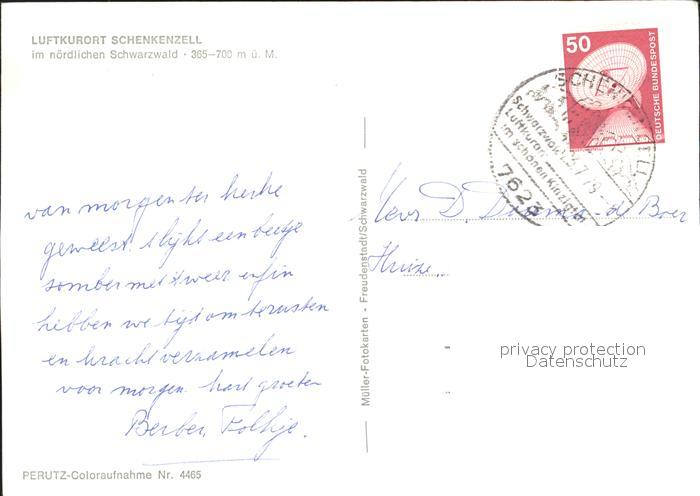 LUFTKURORT SCHENKENZELL
im nördlichen Schwarzwald · 365–700 m ü. M.
50
DEUTSCHE BUNDESPOST
Schwarzwald
Luftkurort
im schönen Kinzigtal
7623
van morgen ter kerke
geweest. t lijkt een beetje
somber met t weer enfin
hebben we tijd om te rusten
en kracht verzamelen
voor morgen. hart groeten
Berber, Folkje.
Mevr D. - de Boer
Huize
Müller-Fotokarten · Freudenstadt/Schwarzwald
privacy protection
Datenschutz
PERUTZ-Coloraufnahme Nr. 4465